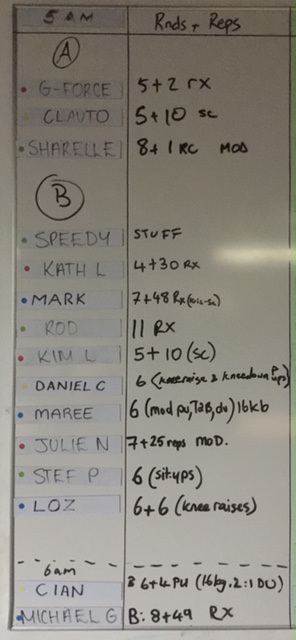 5 AM Rnds + Reps
A
G-FORCE 5+2 rx
CLAUTO 5+10 sc
SHARELLE 8+1 RC MOD
B
SPEEDY STUFF
KATH L 4+30 Rx
MARK 7+48 Rx
ROD 11 RX
KIM L 5+10 (sc)
DANIEL C 6 (kneeraise & kneedown P ups)
MAREE 6 (mod pu, T2B, du) 16kb
JULIE N 7+25 reps MOD.
STEF P 6 (situps)
LOZ 6+6 (knee raises)
6am
CIAN 6+4 PU (16kg, 2:1 DU)
MICHAEL G B: 8+49 RX